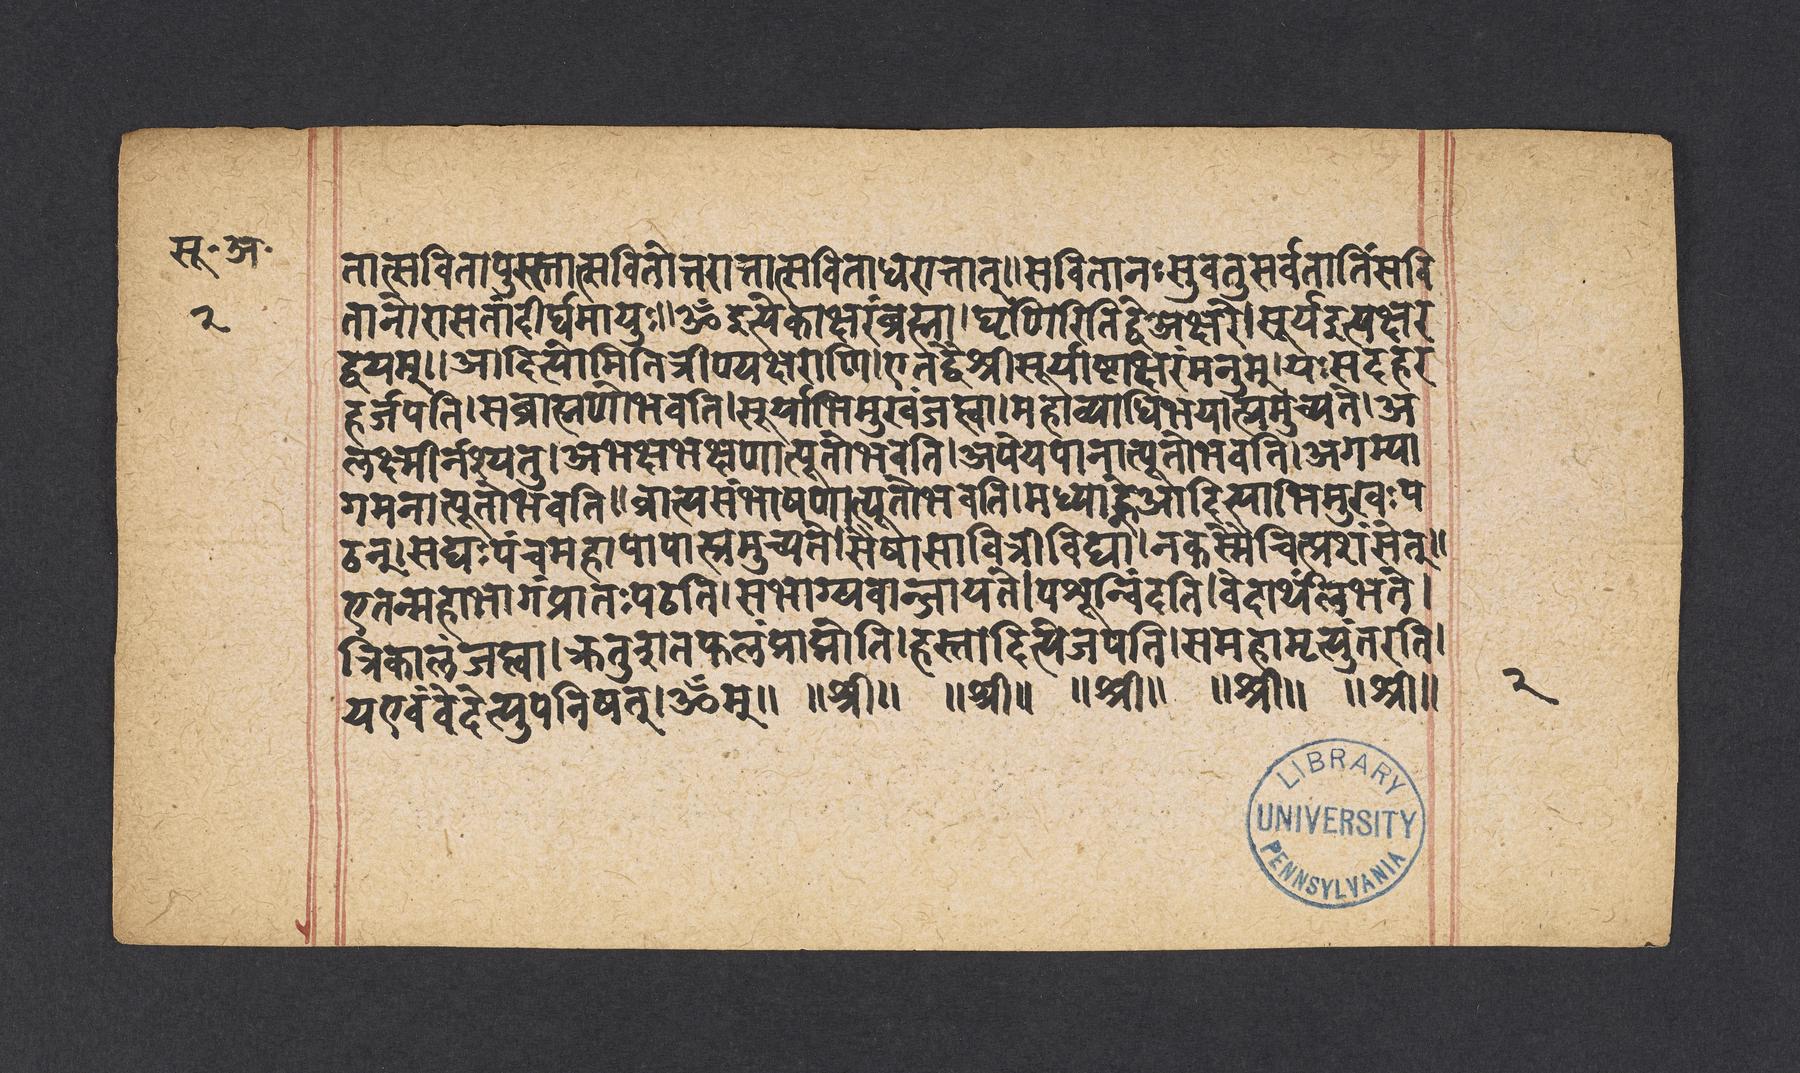 सू॰अ॰
२
तात्सवितापुरस्तात्सवितोत्तरात्तात्सविताधरात्तात्॥सवितानःसुवतुसर्वतातिंसवि
तानोरासतांदीर्घमायुः॥ॐइत्येकाक्षरंब्रह्म।घृणिरितिद्वेअक्षरे।सूर्यइत्यक्षर
द्वयम्॥आदित्यामितित्रीण्यक्षराणि।एतद्वैश्रीसूर्याष्टाक्षरंमनुम्।यःसदहर
हर्जपति।सब्राह्मणोभवति।सूर्याभिमुखंजप्त्वा।महाव्याधिभयात्प्रमुच्यते।अ
लक्ष्मीर्नश्यतु।अभक्षभक्षणात्पूतोभवति।अपेयपानात्पूतोभवति।अगम्या
गमनात्पूतोभवति॥व्रात्यसंभाषणात्पूतोभवति।मध्याह्नआदित्याभिमुखःप
ठन्।सद्यःपंचमहापापात्प्रमुच्यते।सैषासावित्रीविद्या।नकस्मैचित्प्रशंसेत्॥
एतन्महाभागंप्रातःपठति।सभाग्यवान्जायते।पश्यून्विंदति।वेदार्थंलभते।
त्रिकालंजप्त्वा।क्रतुशतफलंप्राप्नोति।हस्तादित्येजपति।समहामृत्युंतरति।
यएवंवेदेत्युपनिषत्।ॐम्॥ ॥श्री॥ ॥श्री॥ ॥श्री॥ ॥श्री॥ ॥श्री॥
२
LIBRARY
UNIVERSITY
PENNSYLVANIA